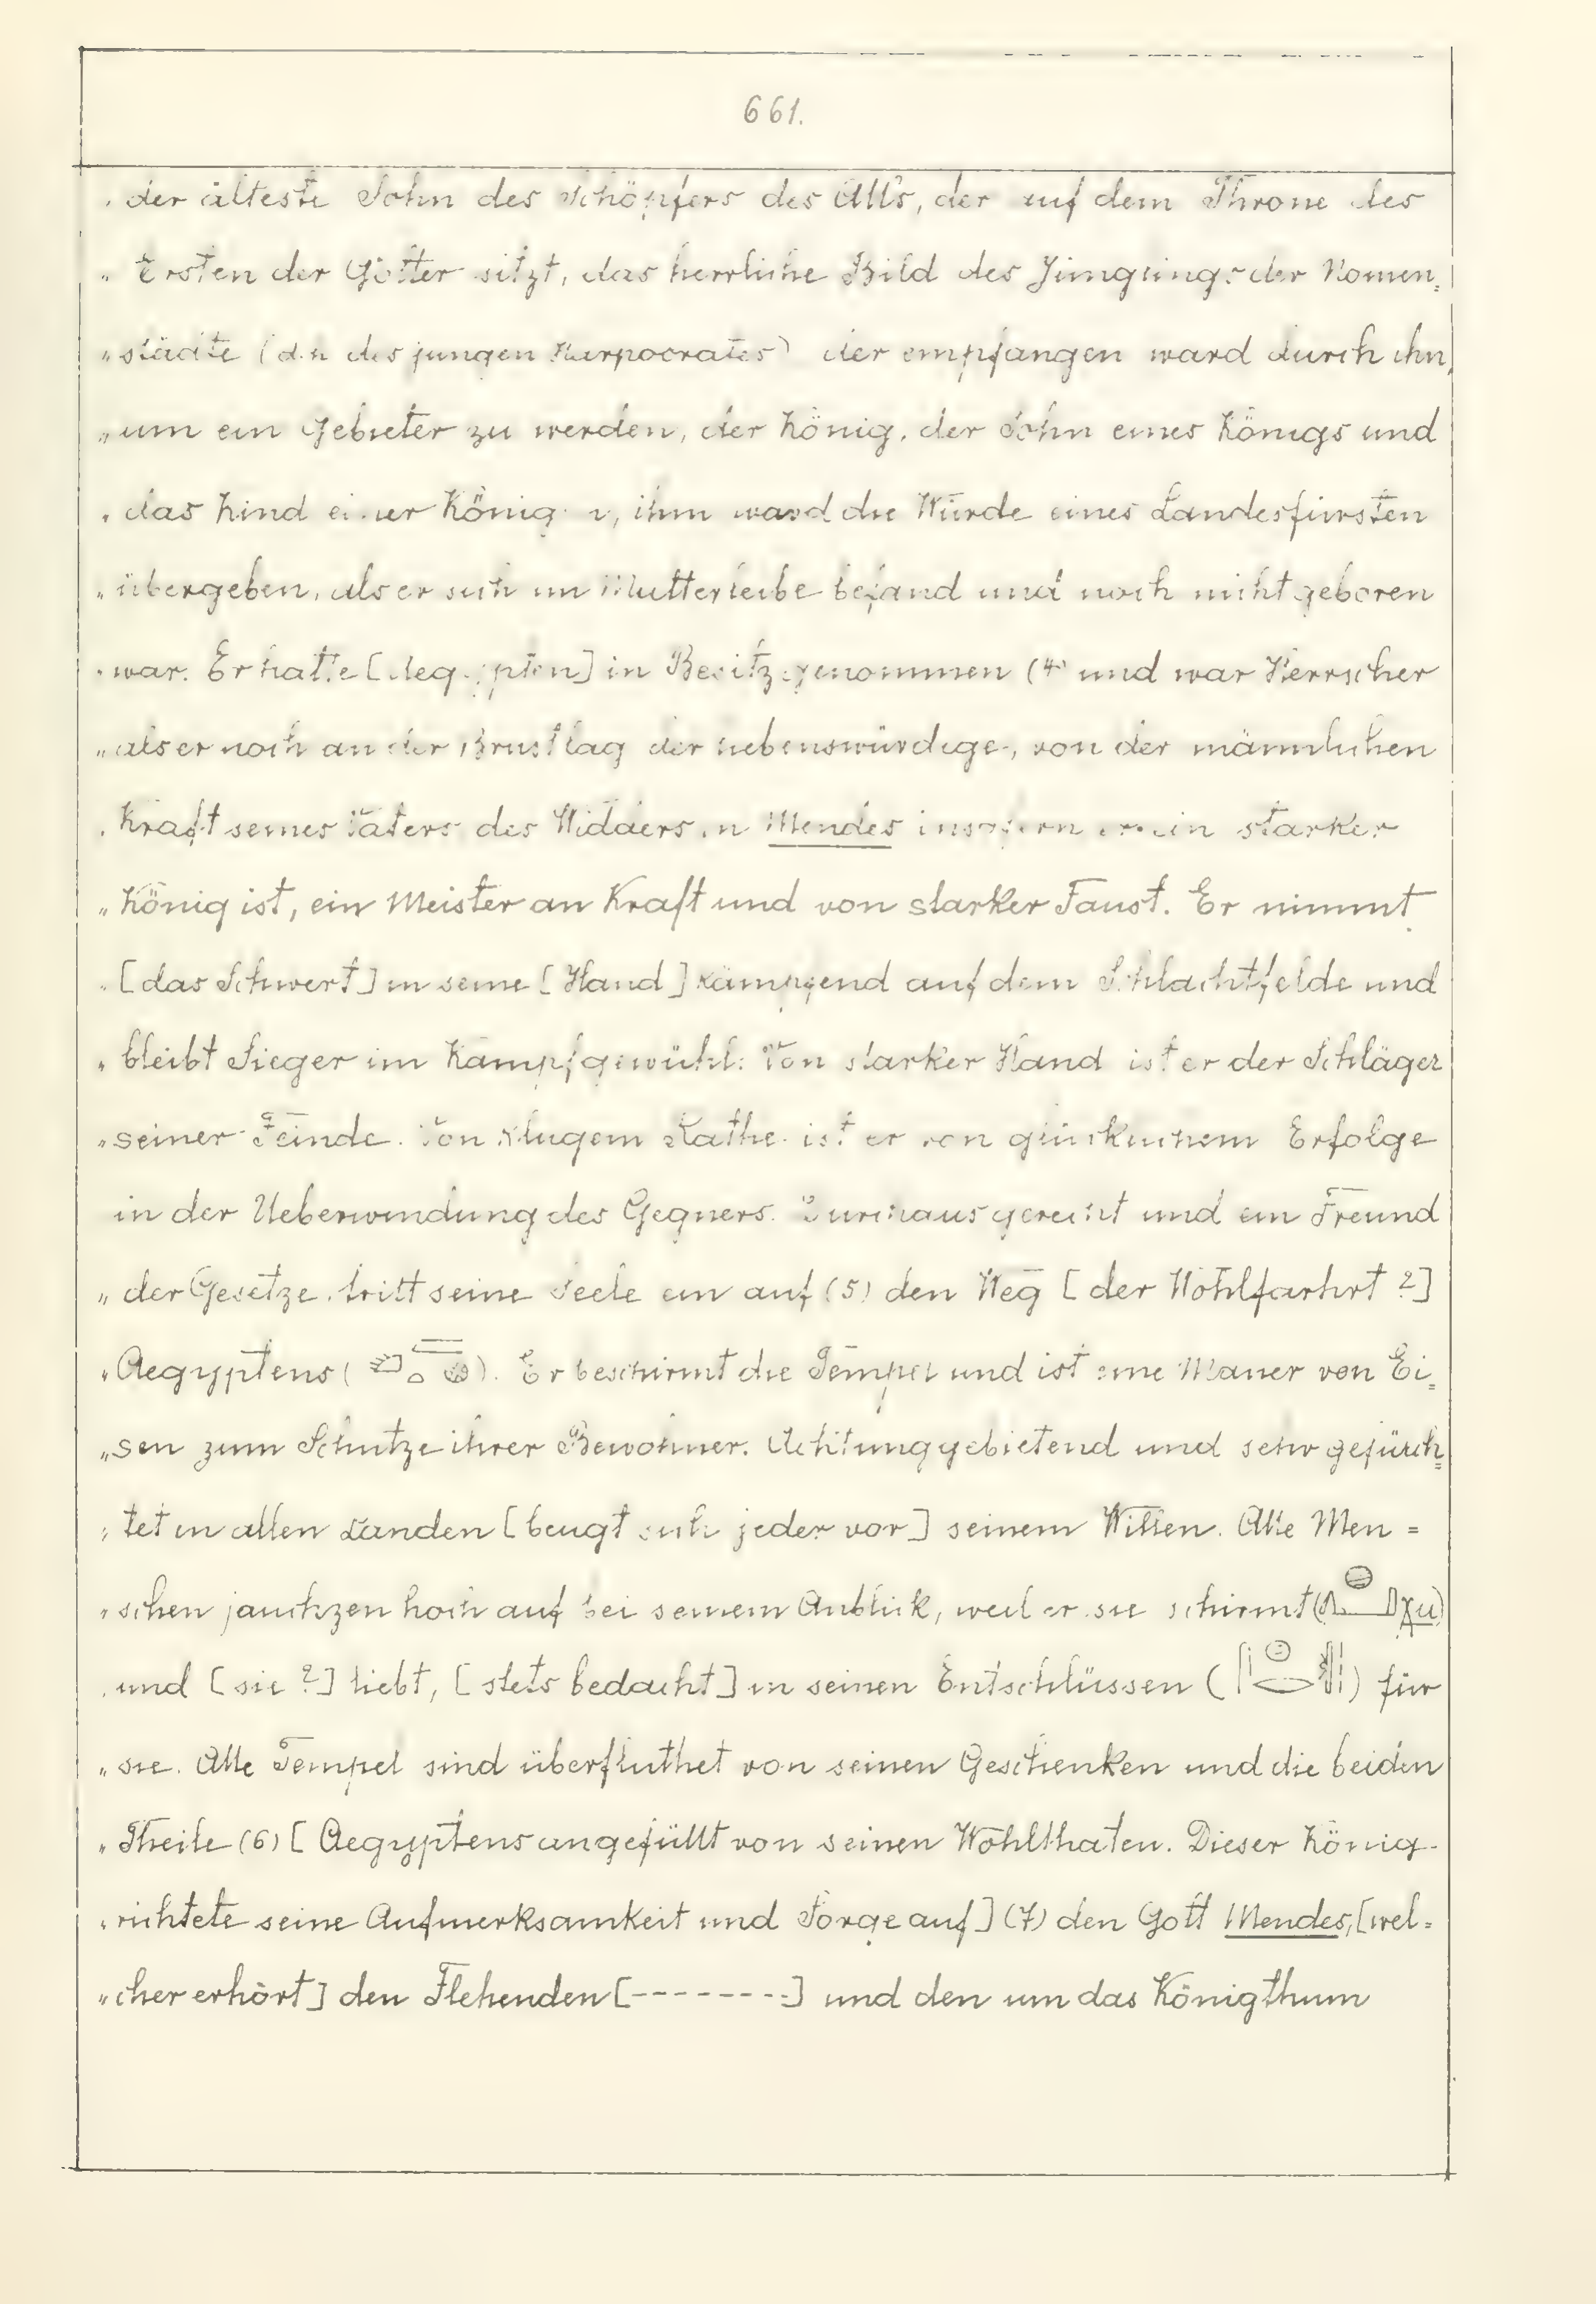 661.
„ der älteste Sohn des Schöpfers des All's, der auf dem Throne des
„ Ersten der Götter sitzt, das herrliche Bild des Jünglings der Nomen=
„ städte (d.h. des jungen Harpocrates) der empfangen ward durch ihn,
„ um ein Gebieter zu werden, der König, der Sohn eines Königs und
„ das Kind einer Königin, ihm ward die Würde eines Landesfürsten
„ übergeben, als er sich im Mutterleibe befand und noch nicht geboren
„ war. Er hatte [Aegypten] in Besitz genommen (4) und war Herrscher
„ als er noch an der Brust lag der liebenswürdige, von der männlichen
„ Kraft seines Vaters des Widders in Mendes insofern er ein starker
„ König ist, ein Meister an Kraft und von starker Faust. Er nimmt
„ [das Schwert] in seine [Hand] kämpfend auf dem Schlachtfelde und
„ bleibt Sieger im Kampfgewühl. Von starker Hand ist er der Schläger
„ seiner Feinde. Von klugem Rathe ist er von glücklichem Erfolge
in der Ueberwindung des Gegners. Durchaus gerecht und ein Freund
„ der Gesetze tritt seine Seele ein auf (5) den Weg [der Wohlfarhrt ?]
„ Aegyptens ( ). Er beschirmt die Tempel und ist eine Mauer von Ei=
„ sen zum Schutze ihrer Bewohner. Achtunggebietend und sehr gefürch=
„ tet in allen Landen [beugt sich jeder vor] seinem Willen. Alle Men =
„ schen jauchzen hoch auf bei seinem Anblick, weil er sie schirmt ( χu)
„ und [sie ?] liebt, [stets bedacht] in seinen Entschlüssen ( ) für
„ sie. Alle Tempel sind überfluthet von seinen Geschenken und die beiden
„ Theile (6) [Aegyptens angefüllt von seinen Wohlthaten. Dieser König
„ richtete seine Aufmerksamkeit und Sorge auf] (7) den Gott Mendes, [wel=
„ cher erhört] den Flehenden [--------] und den um das Königthum